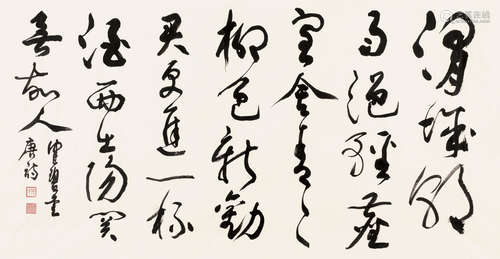 渭城朝
雨浥輕塵
客舍青々
柳色新勸
君更進一杯
酒西出陽關
無故人
唐詩